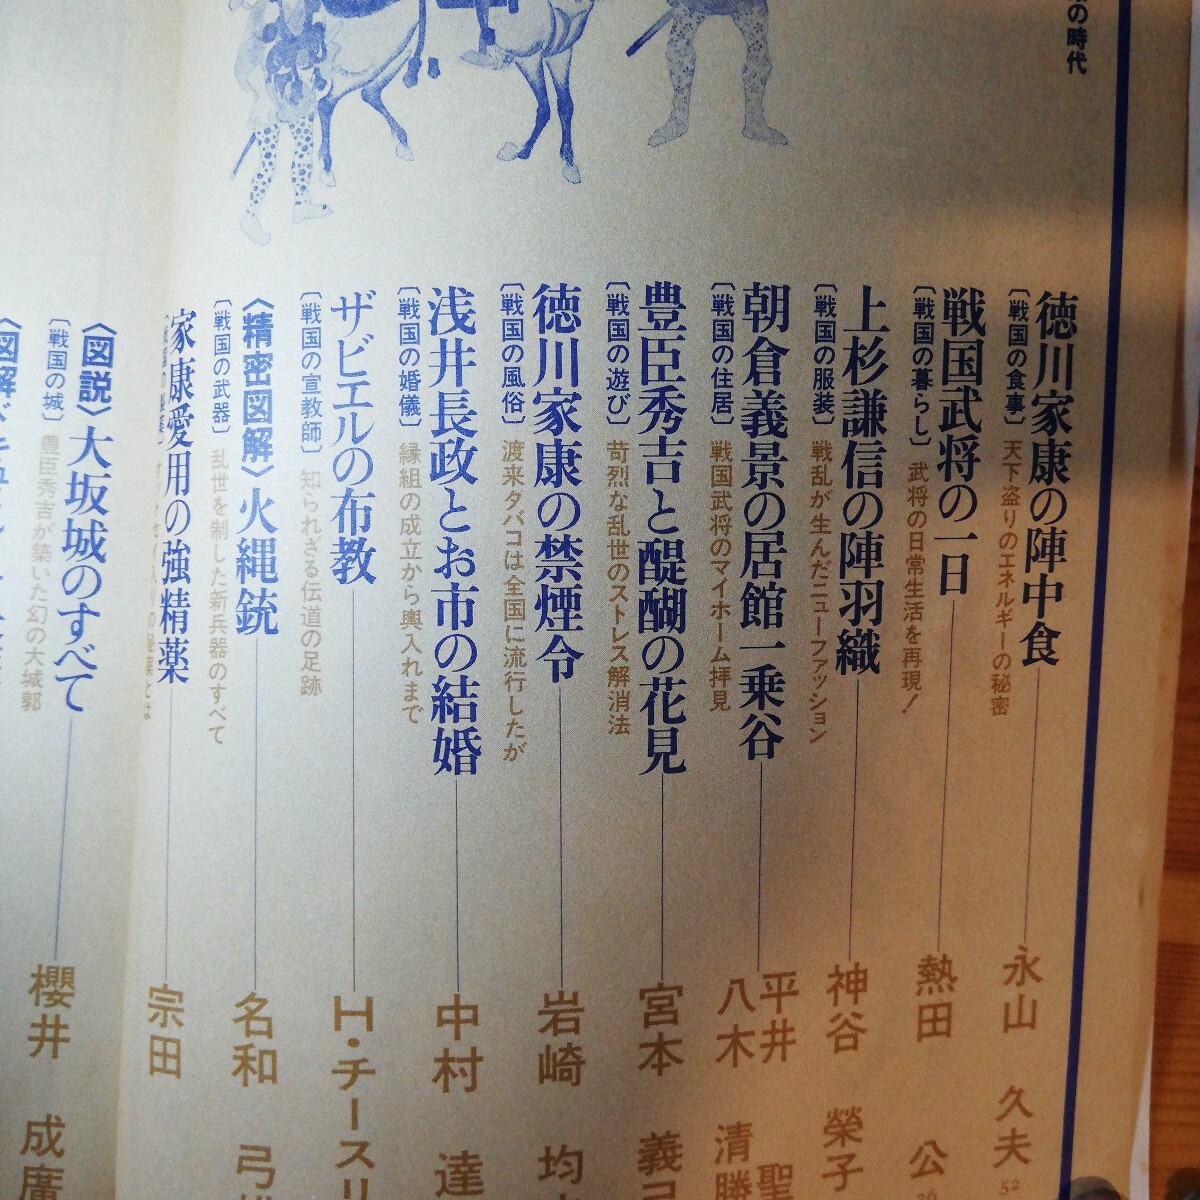 の時代
徳川家康の陣中食
〔戦国の食事〕 天下盗りのエネルギーの秘密
永山 久夫
52
戦国武将の一日
〔戦国の暮らし〕 武将の日常生活を再現!
熱田 公
上杉謙信の陣羽織
〔戦国の服装〕 戦乱が生んだニューファッション
神谷 榮子
朝倉義景の居館一乗谷
〔戦国の住居〕 戦国武将のマイホーム拝見
平井 聖
八木 清勝
豊臣秀吉と醍醐の花見
〔戦国の遊び〕 苛烈な乱世のストレス解消法
宮本 義
徳川家康の禁煙令
〔戦国の風俗〕 渡来タバコは全国に流行したが
岩崎 均
浅井長政とお市の結婚
〔戦国の婚儀〕 縁組の成立から輿入れまで
中村 達
ザビエルの布教
〔戦国の宣教師〕 知られざる伝道の足跡
H・チースリ
〈精密図解〉火縄銃
〔戦国の武器〕 乱世を制した新兵器のすべて
名和 弓
家康愛用の強精薬
宗田
〈図説〉大坂城のすべて
〔戦国の城〕 豊臣秀吉が築いた幻の大城郭
櫻井 成廣
〈図解